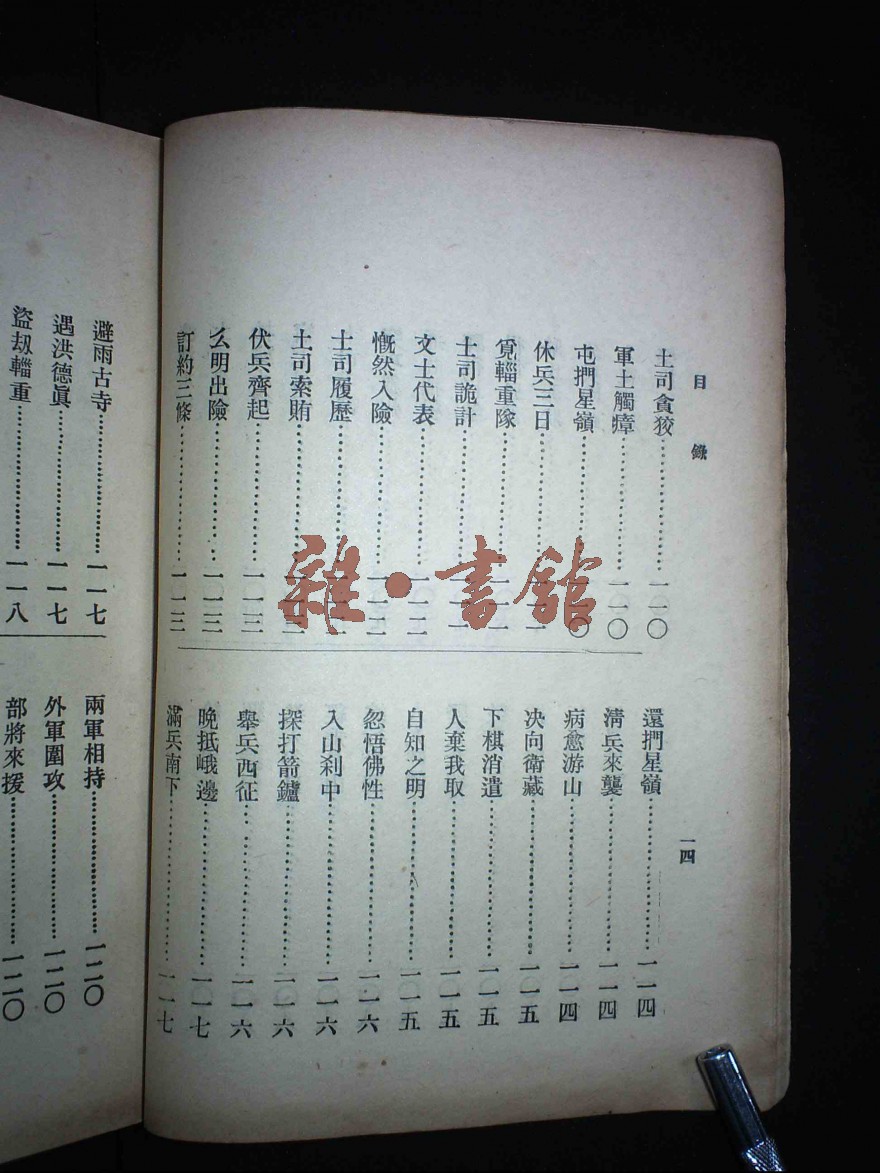 目錄
土司貪狡⋯⋯一一〇
軍士觸瘴⋯⋯一一〇
屯捫星嶺⋯⋯一一〇
休兵三日⋯⋯一一一
覓輜重隊⋯⋯一一一
士司詭計⋯⋯一一一
文士代表⋯⋯一一二
慨然入險⋯⋯一一二
士司履歷⋯⋯一一二
土司索賄⋯⋯一一三
伏兵齊起⋯⋯一一三
么明出險⋯⋯一一三
訂約三條⋯⋯一一三
還捫星嶺⋯⋯一一四
清兵來襲⋯⋯一一四
病愈游山⋯⋯一一四
决向衛藏⋯⋯一一五
下棋消遣⋯⋯一一五
人棄我取⋯⋯一一五
自知之明⋯⋯一一五
忽悟佛性⋯⋯一一六
入山刹中⋯⋯一一六
探打箭鑪⋯⋯一一六
舉兵西征⋯⋯一一六
晚抵峨邊⋯⋯一一七
滿兵南下⋯⋯一一七
一四
避雨古寺⋯⋯一一七
遇洪德眞⋯⋯一一七
盜刼輜重⋯⋯一一八
兩軍相持⋯⋯一二〇
外軍圍攻⋯⋯一二〇
部將來援⋯⋯一二〇
雜·書館